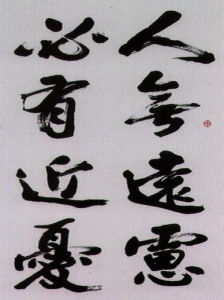 人無遠慮
必有近憂